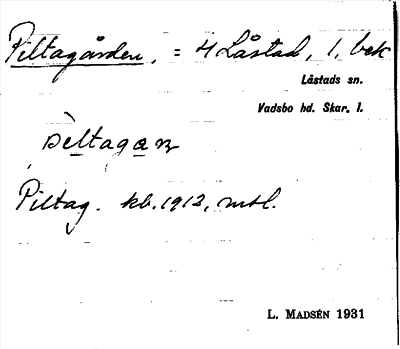 Piltagården, = 4 Låstad, 1, bek
Låstads sn.
Vadsbo hd. Skar. l.
Piltag. kb. 1912, mtl.
L. MADSÉN 1931